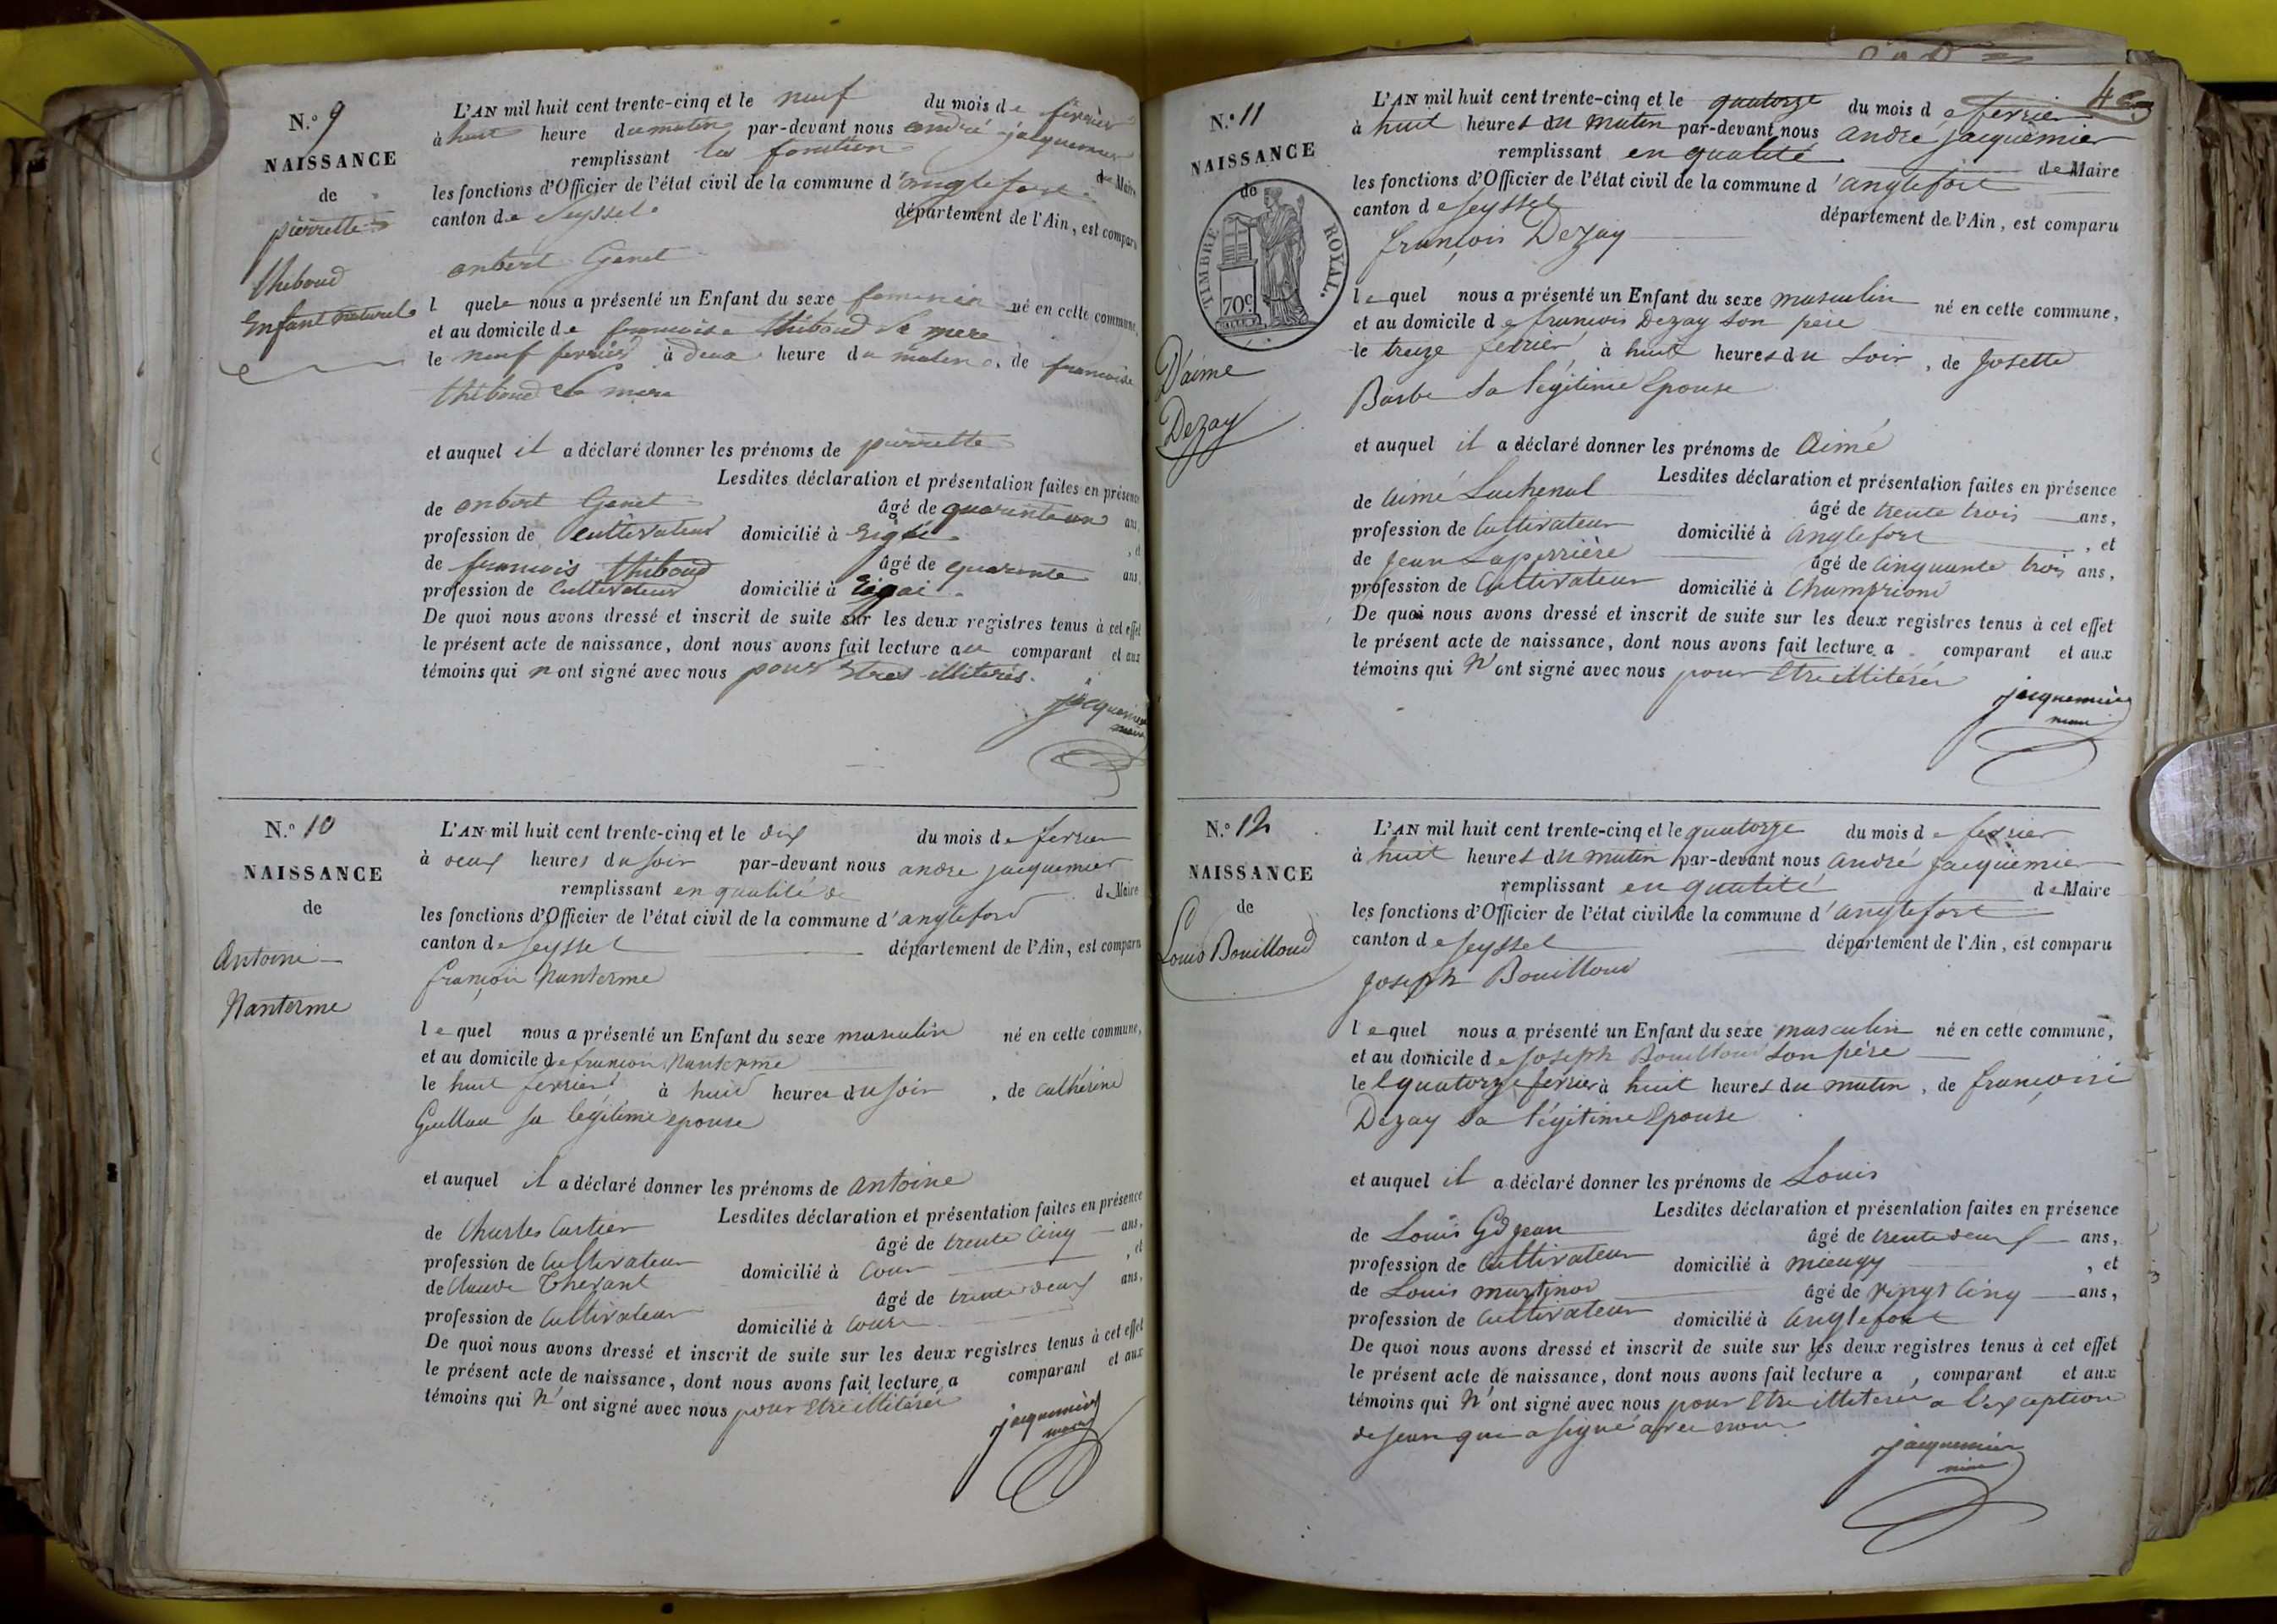 N.º 9
NAISSANCE
de
pierrette
thiboud
Enfant naturel
L'AN mil huit cent trente-cinq et le neuf du mois de février
à huit heure du matin par-devant nous andré jacquemier
remplissant les fonction de Maire
les fonctions d'Officier de l'état civil de la commune d'anglefort
canton de Seyssel département de l'Ain, est comparu
anbert Genet
l quel nous a présenté un Enfant du sexe feminin né en cette commune,
et au domicile de francoise thiboud Sa mere
le neuf fevrier à deux heure du matin, de francoise
thiboud Sa mere
et auquel il a déclaré donner les prénoms de pierrette
Lesdites déclaration et présentation faites en présence
de anbert Genet âgé de quarante un ans
profession de cultivateur domicilié à , et
de francois thiboud âgé de quarante ans,
profession de Cultivateur domicilié à
De quoi nous avons dressé et inscrit de suite sur les deux registres tenus à cet effet
le présent acte de naissance, dont nous avons fait lecture au comparant et aux
témoins qui n ont signé avec nous pour Etres illiterés.
jacquemier
maire
N.º 10
NAISSANCE
de
Antoine
Nanterme
L'AN mil huit cent trente-cinq et le dix du mois de fevrier
à deux heures du soir par-devant nous andre jacquemier
remplissant en qualité de de Maire
les fonctions d'Officier de l'état civil de la commune d'angleford
canton de Seyssel département de l'Ain, est comparu
françois Nanterme
le quel nous a présenté un Enfant du sexe masculin né en cette commune,
et au domicile de francois Nanterme
le huit fevrier à huit heures du soir, de cathérine
Guillau sa legitime epouse
et auquel il a déclaré donner les prénoms de antoine
Lesdites déclaration et présentation faites en présence
de Charles Cartier âgé de trente cinq ans,
profession de Cultivateur domicilié à Cour , et
de Claude Therant âgé de trente deux ans,
profession de Cultivateur domicilié à Cour
De quoi nous avons dressé et inscrit de suite sur les deux registres tenus à cet effet
le présent acte de naissance, dont nous avons fait lecture a comparant et aux
témoins qui n'ont signé avec nous pour Etre illitérés
jacquemier
maire
4
N.º 11
NAISSANCE
de
TIMBRE ROYAL.
70c
D'aimé
Dezay
L'AN mil huit cent trente-cinq et le quatorze du mois de fevrier
à huit heures du matin par-devant nous andré jacquemier
remplissant en qualité de Maire
les fonctions d'Officier de l'état civil de la commune d'anglefort
canton de Seyssel département de l'Ain, est comparu
françois Dezay
le quel nous a présenté un Enfant du sexe masculin né en cette commune,
et au domicile de francois Dezay son père
le treize fevrier à huit heures du soir, de Josette
Barbe Sa légitime Epouse
et auquel il a déclaré donner les prénoms de Aimé
Lesdites déclaration et présentation faites en présence
de Aimé Luchenal âgé de trente trois ans,
profession de Cultivateur domicilié à Anglefort , et
de Jean Laperrière âgé de Cinquante trois ans,
profession de Cultivateur domicilié à Champriond
De quoi nous avons dressé et inscrit de suite sur les deux registres tenus à cet effet
le présent acte de naissance, dont nous avons fait lecture a comparant et aux
témoins qui n'ont signé avec nous pour Etre illitérés
jacquemier
maire
N.º 12
NAISSANCE
de
Louis Bouilloud
L'AN mil huit cent trente-cinq et le quatorze du mois de fevrier
à huit heures du matin par-devant nous, André Jacquemier
remplissant en qualité de Maire
les fonctions d'Officier de l'état civil de la commune d'anglefort
canton de Seyssel département de l'Ain, est comparu
Joseph Bouilloud
le quel nous a présenté un Enfant du sexe masculin né en cette commune,
et au domicile de Joseph Bouilloud Son père
le quatorze fevrier à huit heures du matin, de françoise
Dezay Sa légitime Epouse
et auquel il a déclaré donner les prénoms de Louis
Lesdites déclaration et présentation faites en présence
de Louis Gojean âgé de trente deux ans,
profession de Cultivateur domicilié à mieugy , et
de Louis martinod âgé de vingt cinq ans,
profession de Cultivateur domicilié à Anglefort
De quoi nous avons dressé et inscrit de suite sur les deux registres tenus à cet effet
le présent acte de naissance, dont nous avons fait lecture a , comparant et aux
témoins qui n'ont signé avec nous pour Etre illiterés a l'exception
de Jean qui a signé avec nous
jacquemier
maire